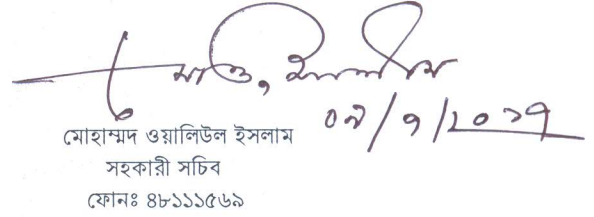 ০৯/৭/২০১৭
মোহাম্মদ ওয়ালিউল ইসলাম
সহকারী সচিব
ফোনঃ ৪৮১১১৫৬৯